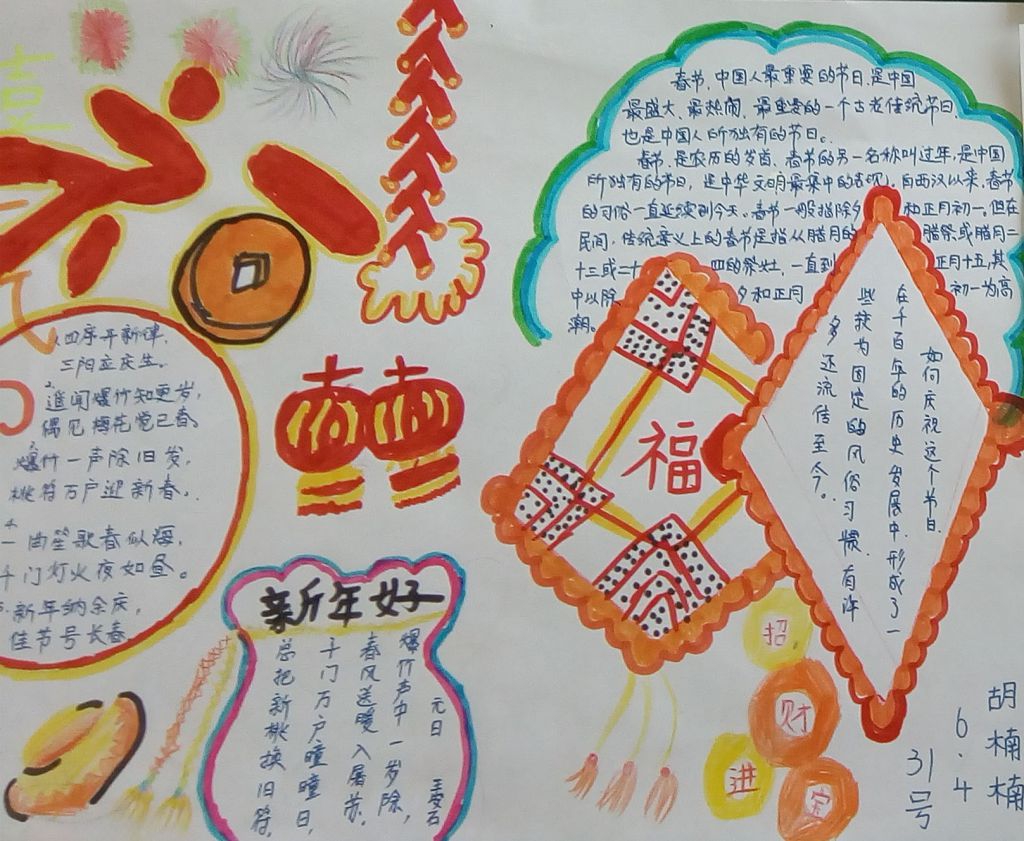 喜
春节,中国人最重要的节日,是中国
最盛大、最热闹、最重要的一个古老传统节日,
也是中国人所独有的节日。
春节,是农历的岁首,春节的另一名称叫过年,是中国
所独有的节日,是中华文明最集中的表现。自西汉以来,春节
的习俗一直延续到今天。春节一般指除夕和正月初一。但在
民间,传统意义上的春节是指从腊月的腊祭或腊月二
十三或二十四的祭灶,一直到正月十五,其
中以除夕和正月初一为高
潮。
如何庆祝这个节日,
在千百年的历史发展中,形成了一
些较为固定的风俗习惯,有许
多还流传至今。
福
1.四序开新律,
三阳应庆生。
2.遥闻爆竹知更岁,
偶见梅花觉已春。
3.爆竹一声除旧岁,
桃符万户迎新春。
4.一曲笙歌春似海,
千门灯火夜如昼。
5.新年纳余庆,
佳节号长春
新年好
元日 王安石
爆竹声中一岁除,
春风送暖入屠苏。
千门万户曈曈日,
总把新桃换旧符。
招
财
进
宝
胡楠楠
6.4
31号